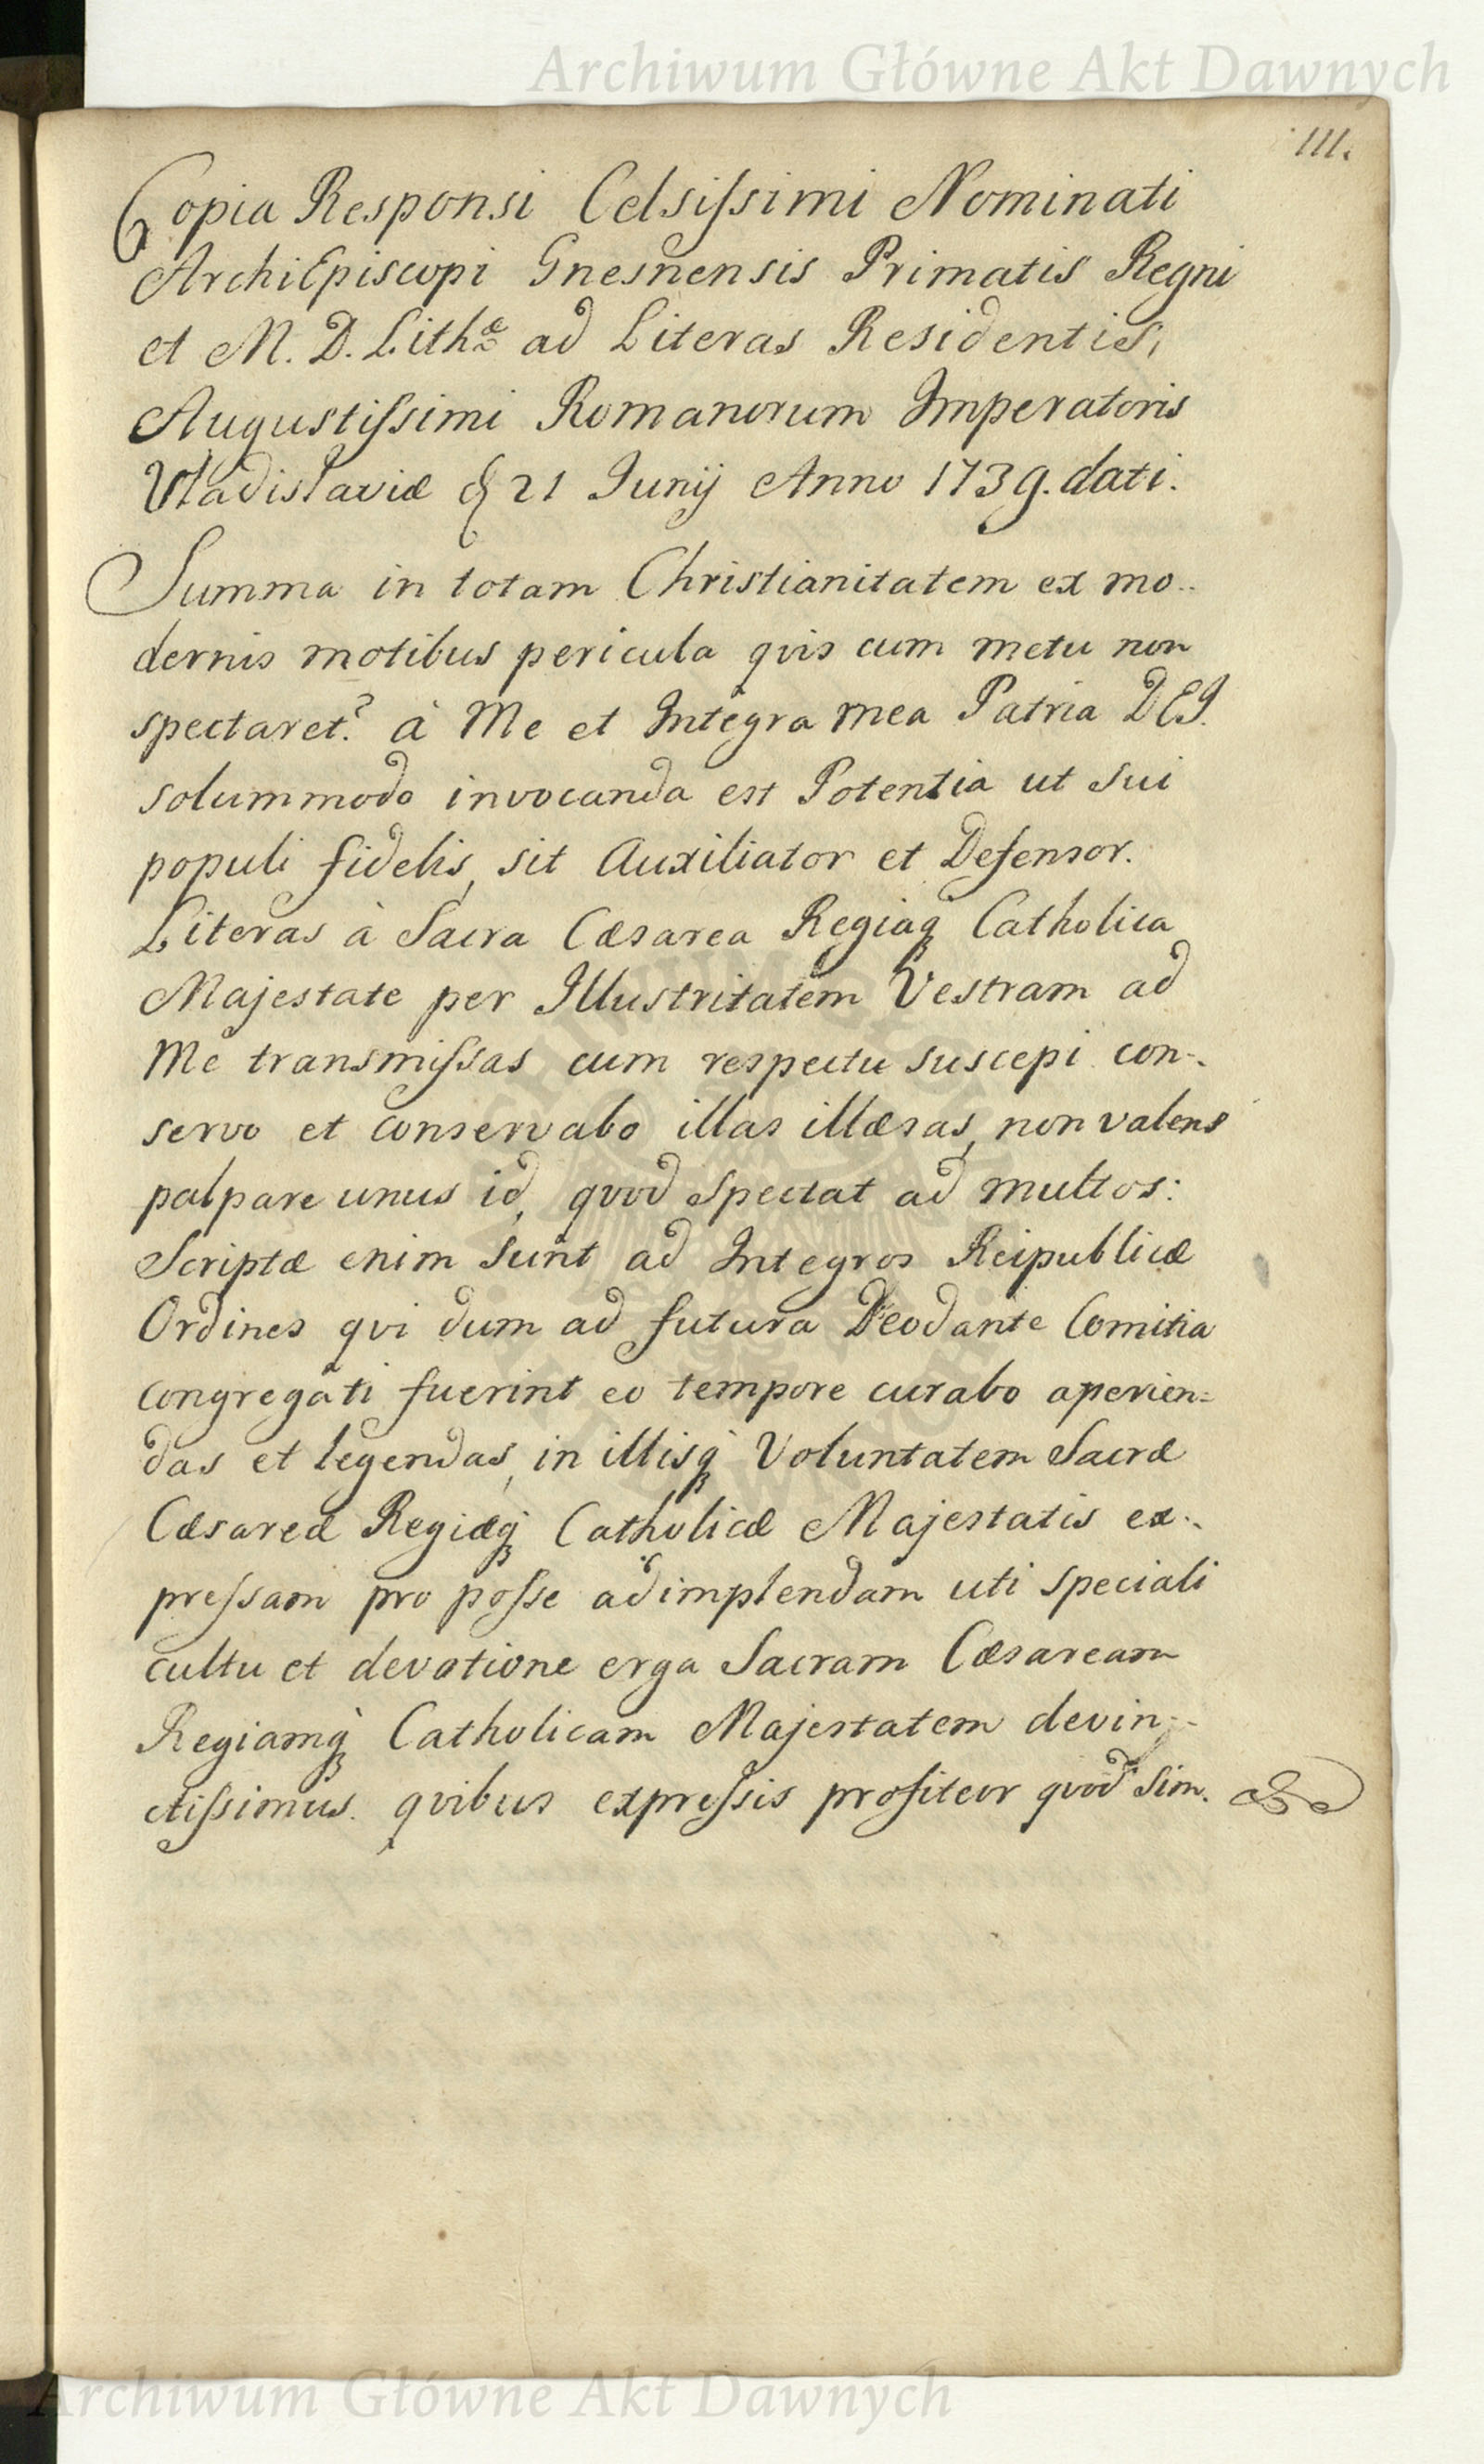 Archiwum Główne Akt Dawnych
111.
Copia Responsi Celsiſsimi Nominati
ArchiEpiscopi Gnesnensis Primatis Regni
et M. D. Lithæ ad Literas Residentis,
Augustiſsimi Romanorum Imperatoris
Vladislaviæ d 21 Junij Anno 1739. dati.
Summa in totam Christianitatem ex mo..
dernis motibus pericula qvis cum metu non
spectaret? à Me et Integra mea Patria DEI.
solummodo invocanda est Potentia ut sui
populi fidelis, sit Auxiliator et Defensor.
Literas à Sacra Cæsarea Regiaq Catholica
Majestate per Illustritatem Vestram ad
Me transmiſsas cum respectu suscepi con-.
servo et conservabo illas illæsas, non valens
palpare unus id, qvod spectat ad multos:
Scriptæ enim sunt ad Integros Reipublicæ
Ordines qvi dum ad futura Deodante Comitia
congregati fuerint eo tempore curabo aperien=
das et legendas, in illisq Voluntatem Sacræ
Cæsareæ Regiæq Catholicæ Majestatis ex-.
preſsam pro poſse adimplendam uti speciali
cultu et devotione erga Sacram Cæsaream
Regiamq Catholicam Majestatem devin-.
ctiſsimus. qvibus expreſsis profiteor qvod sim.
Archiwum Główne Akt Dawnych